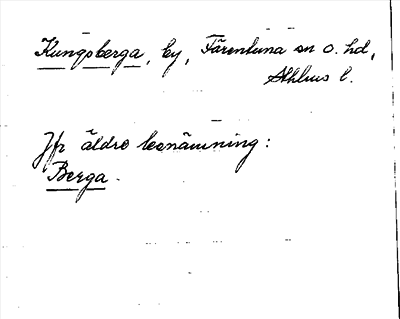 Kungsberga, by, Färentuna sn o. hd,
Sthlms l.
Jfr äldre benämning:
Berga.